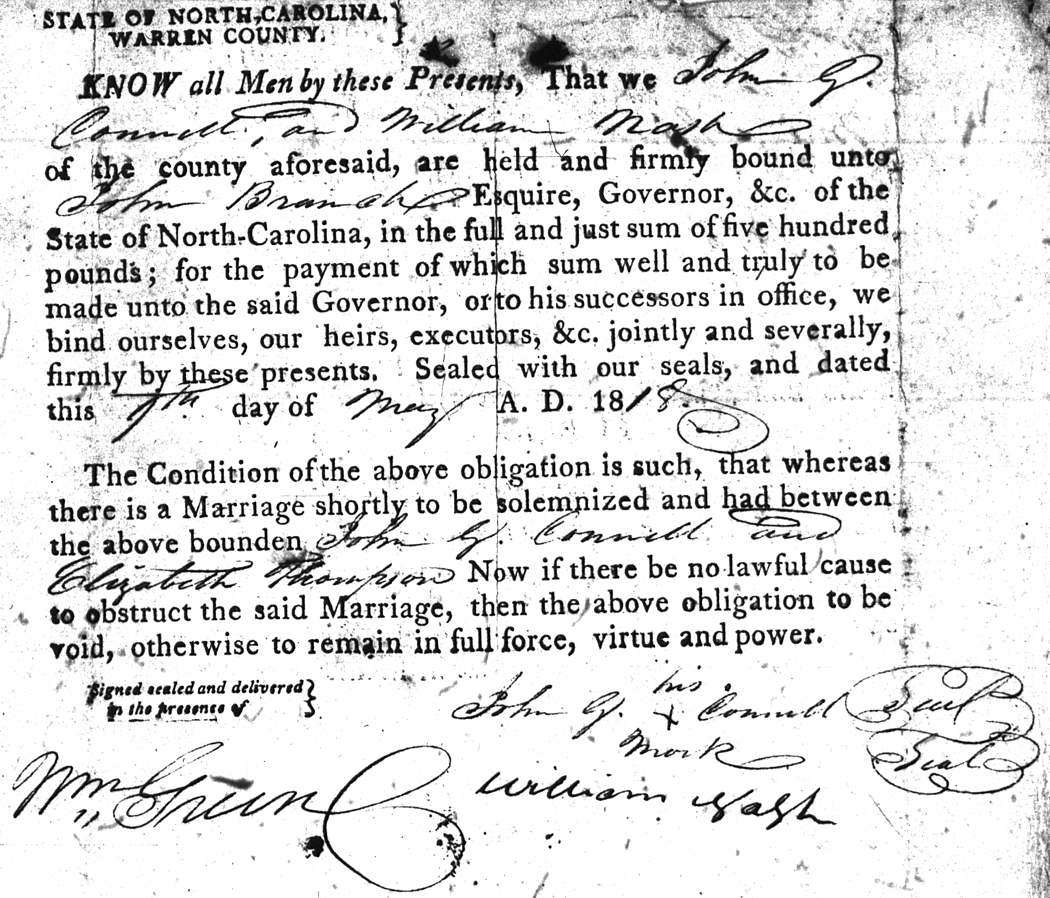 STATE OF NORTH-CAROLINA, }
WARREN COUNTY.
KNOW all Men by these Presents, That we John G.
Connell, and William Nash
of the county aforesaid, are held and firmly bound unto
John Branch Esquire, Governor, &c. of the
State of North-Carolina, in the full and just sum of five hundred
pounds; for the payment of which sum well and truly to be
made unto the said Governor, or to his successors in office, we
bind ourselves, our heirs, executors, &c. jointly and severally,
firmly by these presents. Sealed with our seals, and dated
this 9th day of May A. D. 1818.
The Condition of the above obligation is such, that whereas
there is a Marriage shortly to be solemnized and had between
the above bounden John G. Connell and
Elizabeth Thompson Now if there be no lawful cause
to obstruct the said Marriage, then the above obligation to be
void, otherwise to remain in full force, virtue and power.
Signed sealed and delivered }
in the presence of
his
John G. + Connell Seal
mark
Wm Green
William Nash Seal